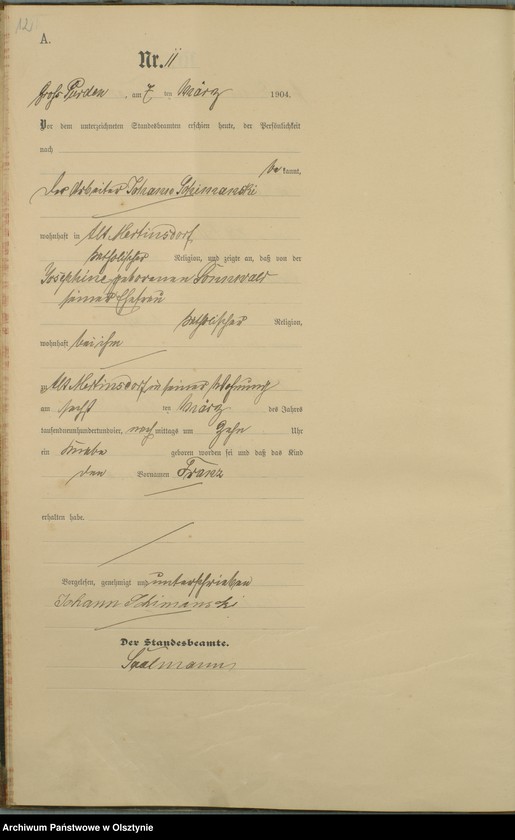 12
A.
Nr. 11
Groß Purden, am 7 ten März 1904.
Vor dem unterzeichneten Standesbeamten erschien heute, der Persönlichkeit
nach
be kannt,
der Arbeiter Johann Schimanski
wohnhaft in Alt Mertinsdorf,
katholischer Religion, und zeigte an, daß von der
Josephine geborenen Sonnewald
seiner Ehefrau
katholischer Religion,
wohnhaft bei ihm
zu Alt Mertinsdorf in seiner Wohnung
am sechs ten März des Jahres
tausendneunhundertundvier, nach mittags um zehn Uhr
ein Knabe geboren worden sei und daß das Kind
den Vornamen Franz
erhalten habe.
Vorgelesen, genehmigt und unterschrieben
Johann Schimanski
Der Standesbeamte.
Saalmann
Archiwum Państwowe w Olsztynie